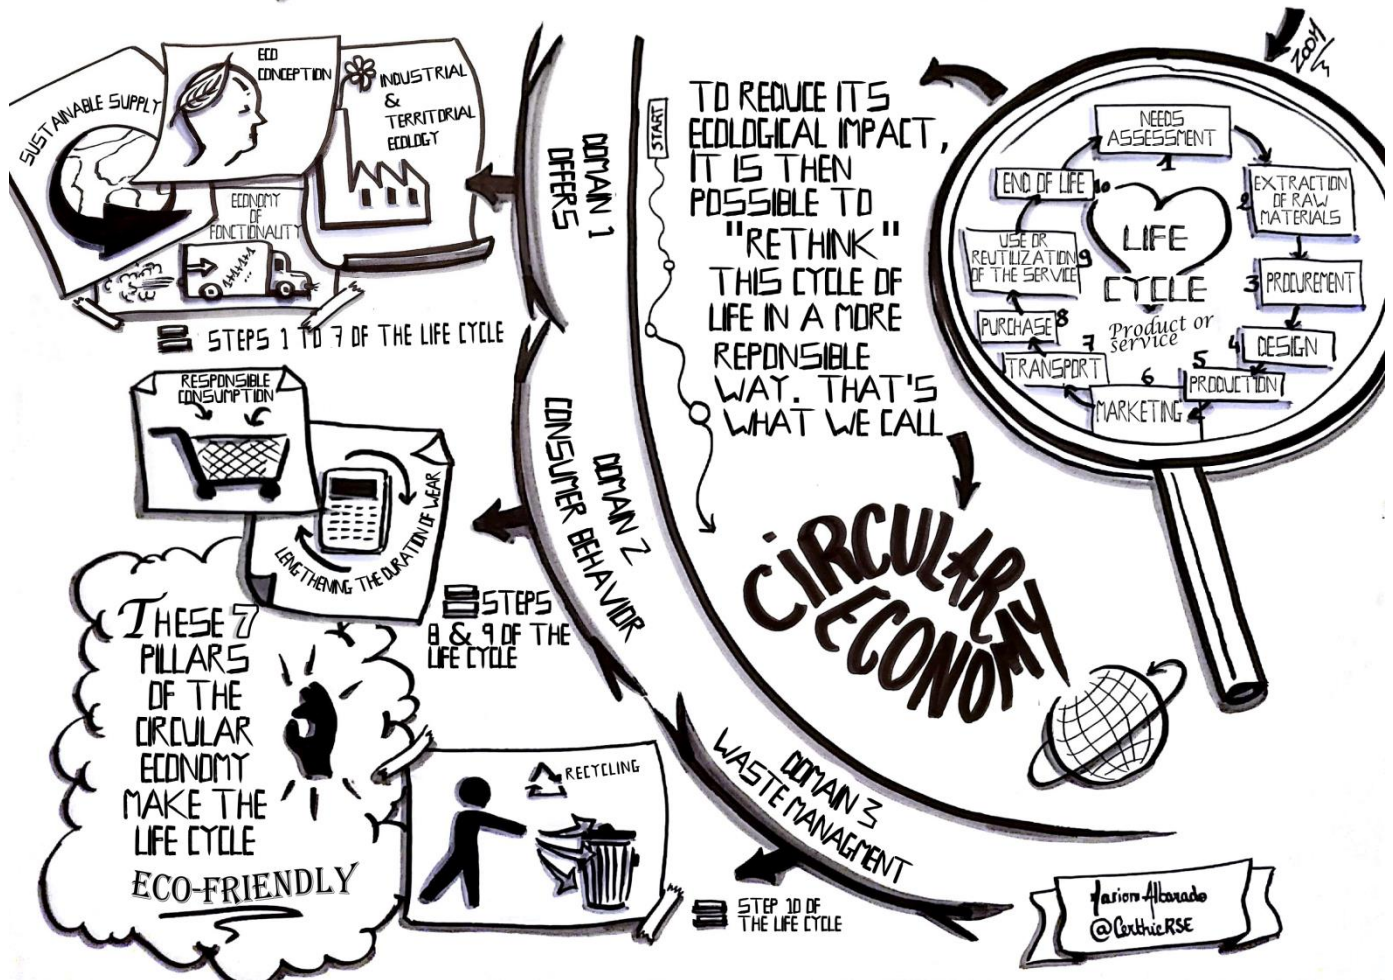 ZOOM
NEEDS
ASSESSMENT
1
2
EXTRACTION
OF RAW
MATERIALS
3
PROCUREMENT
4
DESIGN
5
PRODUCTION
6
MARKETING
7
TRANSPORT
PURCHASE 8
USE OR
REUTILIZATION
OF THE SERVICE 9
END OF LIFE 10
LIFE
CYCLE
Product or
service
START
TO REDUCE ITS
ECOLOGICAL IMPACT,
IT IS THEN
POSSIBLE TO
"RETHINK"
THIS CYCLE OF
LIFE IN A MORE
REPONSIBLE
WAY. THAT'S
WHAT WE CALL
CIRCULARY
ECONOMY
DOMAIN 1
OFFERS
SUSTAINABLE SUPPLY
ECO
CONCEPTION
INDUSTRIAL
&
TERRITORIAL
ECOLOGY
ECONOMY
OF
FONCTIONALITY
= STEPS 1 TO 7 OF THE LIFE CYCLE
DOMAIN 2
CONSUMER BEHAVIOR
RESPONSIBLE
CONSUMPTION
LENGTHENING THE DURATION OF WEAR
= STEPS
8 & 9 OF THE
LIFE CYCLE
DOMAIN 3
WASTE MANAGMENT
RECYCLING
= STEP 10 OF
THE LIFE CYCLE
THESE 7
PILLARS
OF THE
CIRCULAR
ECONOMY
MAKE THE
LIFE CYCLE
ECO-FRIENDLY
Marion Albarado
@CerthicRSE